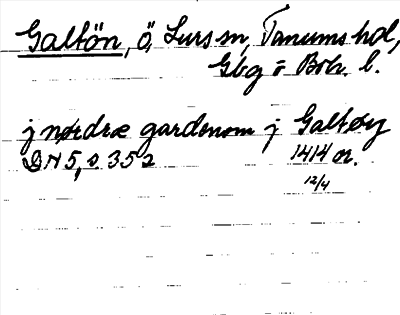 Galtön, ö, Lurs sn, Tanums hd,
Gbg o Boh. l.
j nørdræ gardenom j Galtøy
DN 5, s 352 1414 or.
12/4